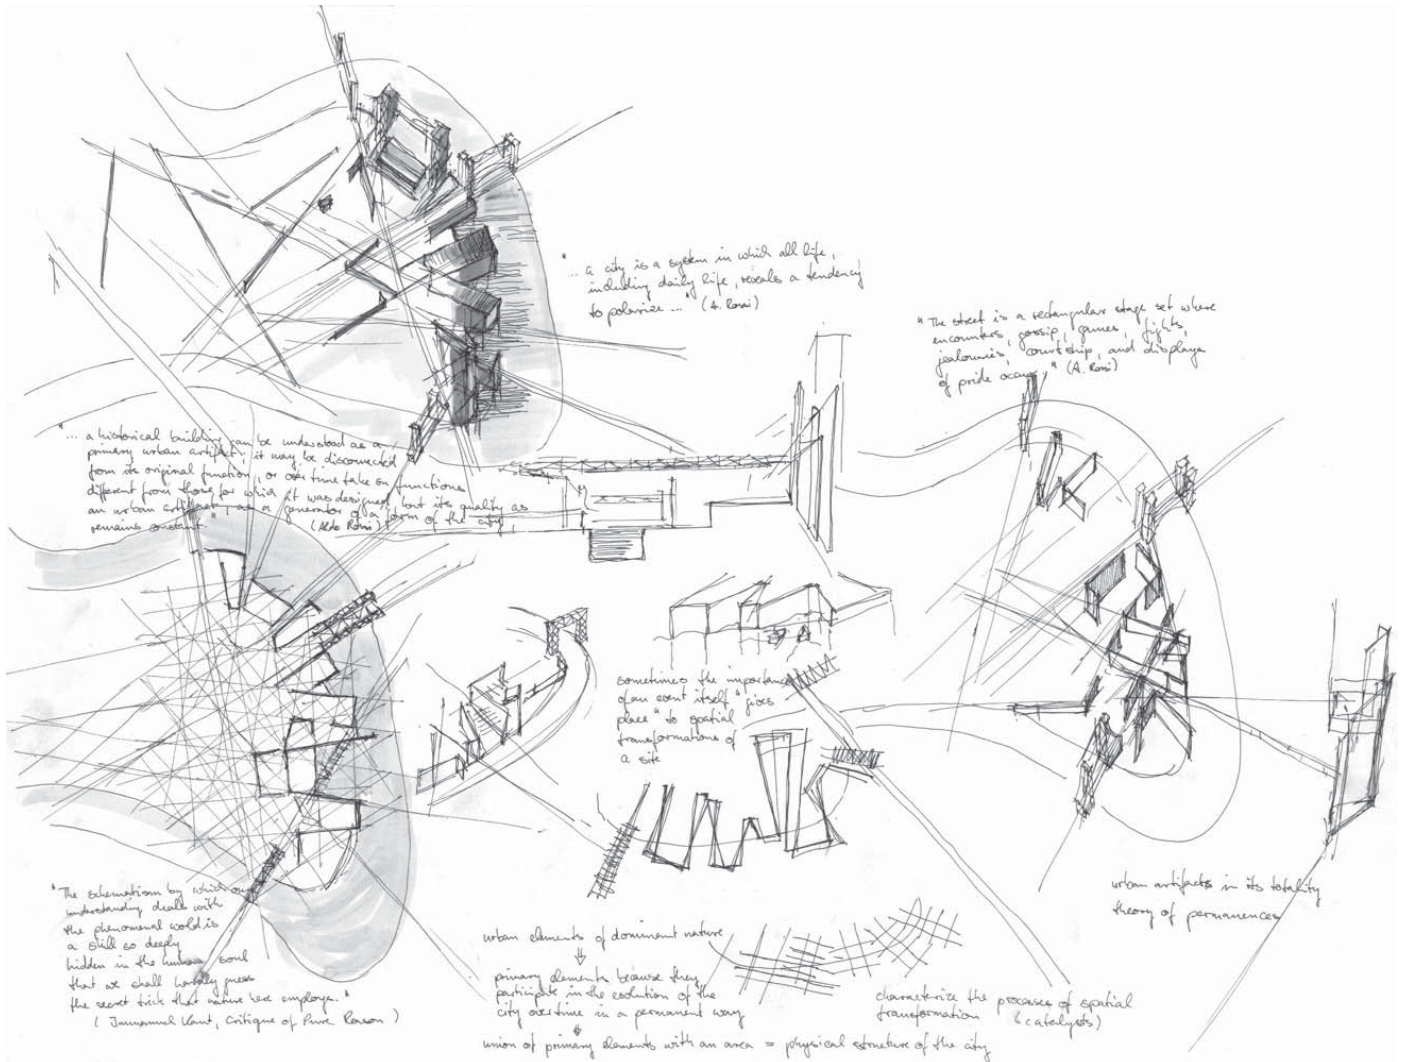 "... a city is a system in which all life,
including daily life, reveals a tendency
to polarize ..." (A. Rossi)
"The street is a rectangular stage set where
encounters, gossip, games, fights,
jealousies, courtship, and displays
of pride occur." (A. Rossi)
"... a historical building can be understood as a
primary urban artifact; it may be disconnected
from its original function, or over time take on functions
different from those for which it was designed, but its quality as
an urban artifact, as a generator of a form of the city,
remains constant." (Aldo Rossi)
sometimes the importance
of an event itself "gives
place" to spatial
transformations of
a site
"The schematism by which our
understanding deals with
the phenomenal world is
a skill so deeply
hidden in the human soul
that we shall hardly guess
the secret trick that nature here employs."
(Immanuel Kant, Critique of Pure Reason)
urban artifacts in its totality
theory of permanences
urban elements of dominant nature
⇓
primary elements because they
participate in the evolution of the
city over time in a permanent way
union of primary elements with an area = physical structure of the city
characterize the processes of spatial
transformation (catalysts)